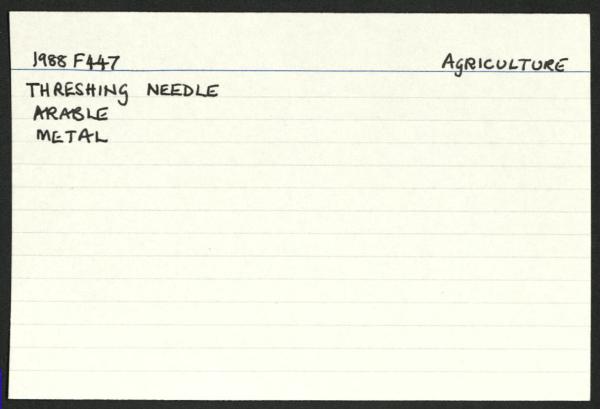 1988 F447 AGRICULTURE
THRESHING NEEDLE
ARABLE
METAL